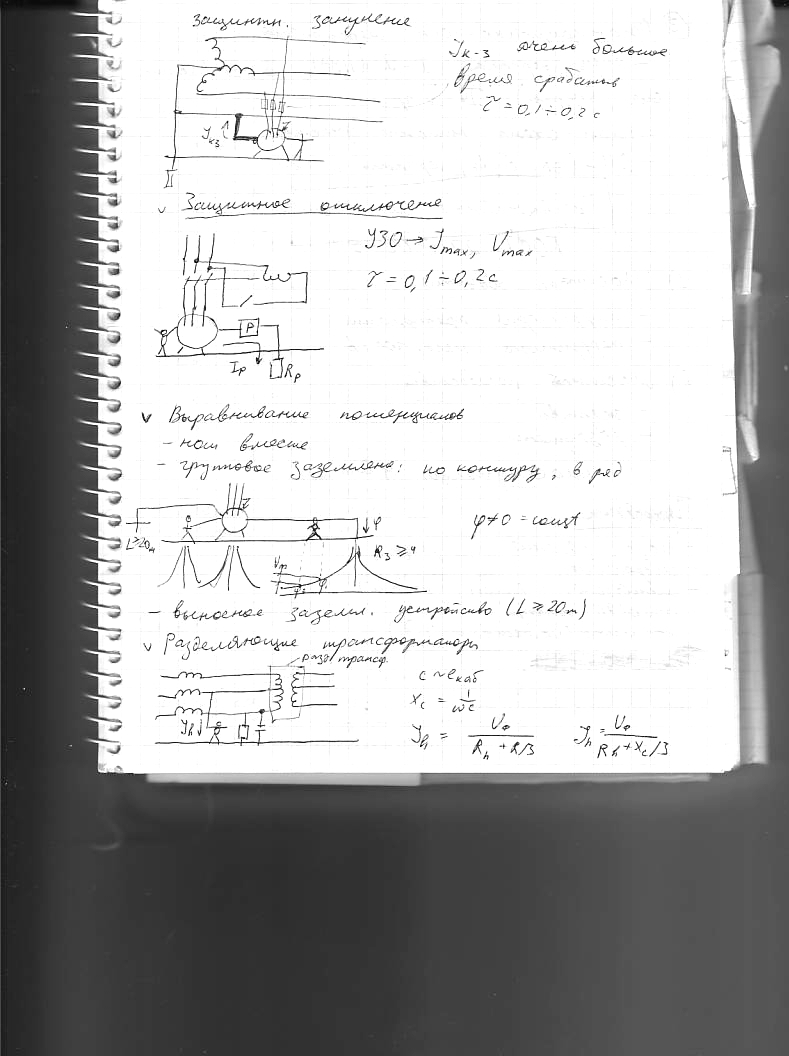 Защитн. зануление
Jк-з очень большое
Время срабатыв
τ = 0,1 ÷ 0,2 с
Jкз
Защитное отключение
УЗО → Jmax, Umax
τ = 0,1 ÷ 0,2 с
P
Iр
Rр
v Выравнивание потенциалов
- групповое заземлене: по контуру, в ряд
L≥20м
φ
φ≠0 = const
Rз ≥ 4
Uпр
- выносное заземл. устройство (L ≥ 20м)
v Разделяющие трансформаторы
разд. трансф.
c ~ lкаб
Xc = 1/ωc
Jh
Jh = Uф / (Rh + R/3)
Jh = Uф / (Rh + Xc/3)